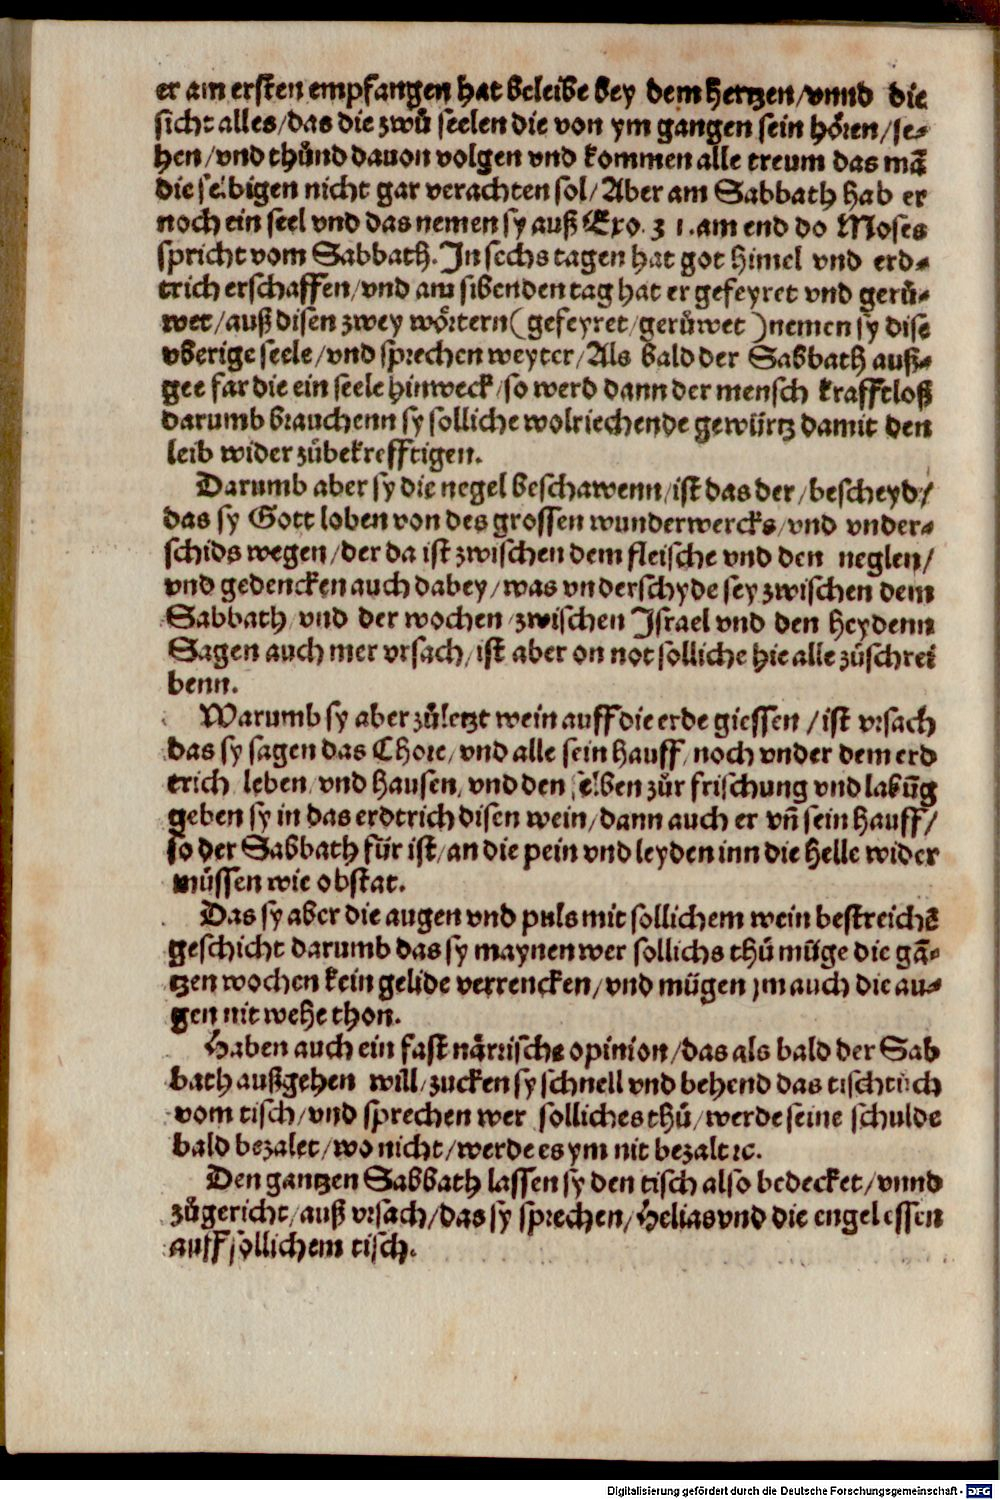 er am ersten empfangen hat beleibe bey dem hertzen/vnnd die
sicht alles/das die zwů seelen die von ym gangen sein hören/se-
hen/vnd thůnd dauon volgen vnd kommen alle treum das mā
die selbigen nicht gar verachten sol/Aber am Sabbath hab er
noch ein seel vnd das nemen sy auß Exo. 31. am end do Moses
spricht vom Sabbath. In sechs tagen hat got himel vnd erd-
trich erschaffen/vnd am sibenden tag hat er gefeyret vnd gerů-
wet/auß disen zwey wörtern(gefeyret/gerůwet)nemen sy dise
vberige seele/vnd sprechen weyter/Als bald der Sabbath auß-
gee far die ein seele hinweck/so werd dann der mensch krafftloß
darumb brauchenn sy solliche wolriechende gewürtz damit den
leib wider zůbekrefftigen.
Darumb aber sy die negel beschawenn/ist das der/bescheyd/
das sy Gott loben von des grossen wunderwercks/vnd vnder-
schids wegen/der da ist zwischen dem fleische vnd den neglen/
vnd gedencken auch dabey/was vnderschyde sey zwischen dem
Sabbath/vnd der wochen/zwischen Israel vnd den heydenn
Sagen auch mer vrsach/ist aber on not solliche hie alle zůschrei
benn.
Warumb sy aber zůletzt wein auff die erde giessen/ist vrsach
das sy sagen das Chore/vnd alle sein hauff/noch vnder dem erd
trich leben/vnd hausen/vnd den selben zůr frischung vnd labūg
geben sy in das erdtrich disen wein/dann auch er vñ sein hauff/
so der Sabbath für ist/an die pein vnd leyden inn die helle wider
müssen wie obstat.
Das sy aber die augen vnd puls mit sollichem wein bestreichē
geschicht darumb das sy maynen wer sollichs thů müge die gā-
tzen wochen kein gelide verrencken/vnd mügen jm auch die au-
gen nit wehe thon.
Haben auch ein fast närrische opinion/das als bald der Sab
bath außgehen will/zucken sy schnell vnd behend das tischtůch
vom tisch/vnd sprechen wer solliches thů/werde seine schulde
bald bezalet/wo nicht/werde es ym nit bezalt ꝛc.
Den gantzen Sabbath lassen sy den tisch also bedecket/vnnd
zůgericht/auß vrsach/das sy sprechen/Helias vnd die engel essen
auff sollichem tisch.
Digitalisierung gefördert durch die Deutsche Forschungsgemeinschaft - DFG